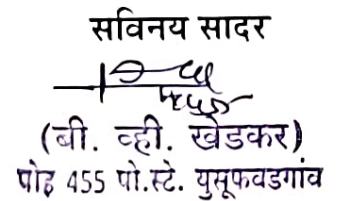 सविनय सादर
(बी. व्ही. खेडकर)
पोह 455 पो.स्टे. युसूफवडगांव